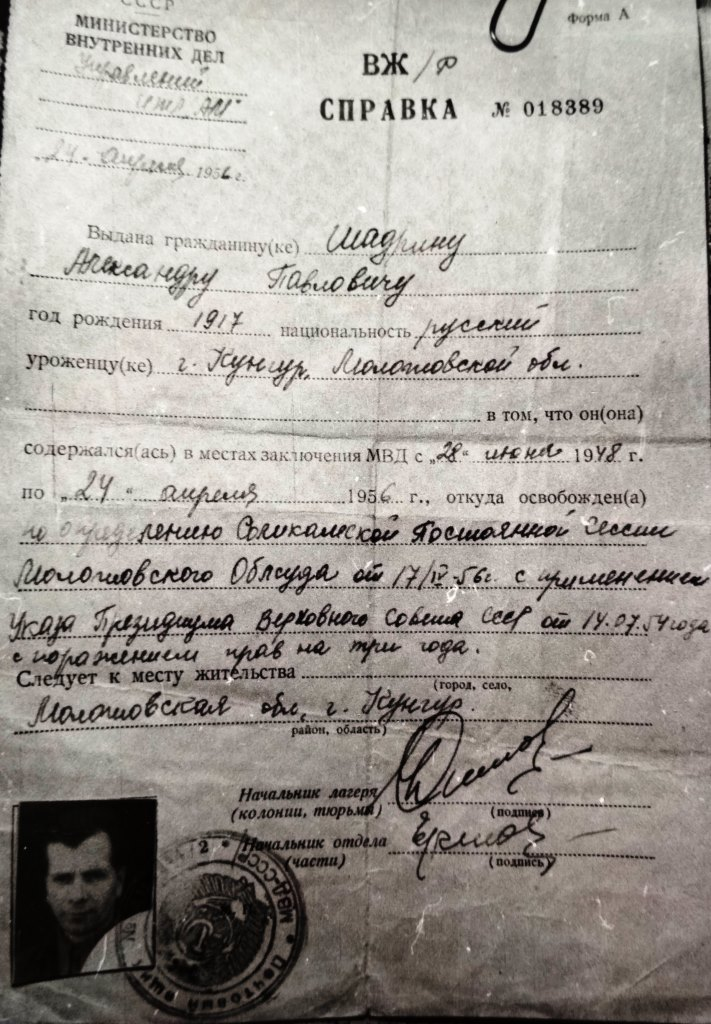 СССР
МИНИСТЕРСТВО
ВНУТРЕННИХ ДЕЛ
Управлений
ИТЛ "АМ"
"24" апреля 1956 г.
Форма А
ВЖ/Ф
СПРАВКА № 018389
Выдана гражданину(ке) Шадрину
Александру Павловичу
год рождения 1917 национальность русский
уроженцу(ке) г. Кунгур, Молотовской обл.
в том, что он(она)
содержался(ась) в местах заключения МВД с „28“ июня 1948 г.
по „24“ апреля 1956 г., откуда освобожден(а)
по определению Соликамской Постоянной Сессии
Молотовского Облсуда от 17/IV-56г. с применением
Указа Президиума Верховного Совета СССР от 14.07.54 года
с поражением прав на три года.
Следует к месту жительства
(город, село,
Молотовская обл, г. Кунгур.
район, область)
Начальник лагеря
(колонии, тюрьмы)
(подпись)
Начальник отдела
(части)
(подпись)
2
МВД-СССР * Почтовый ящик